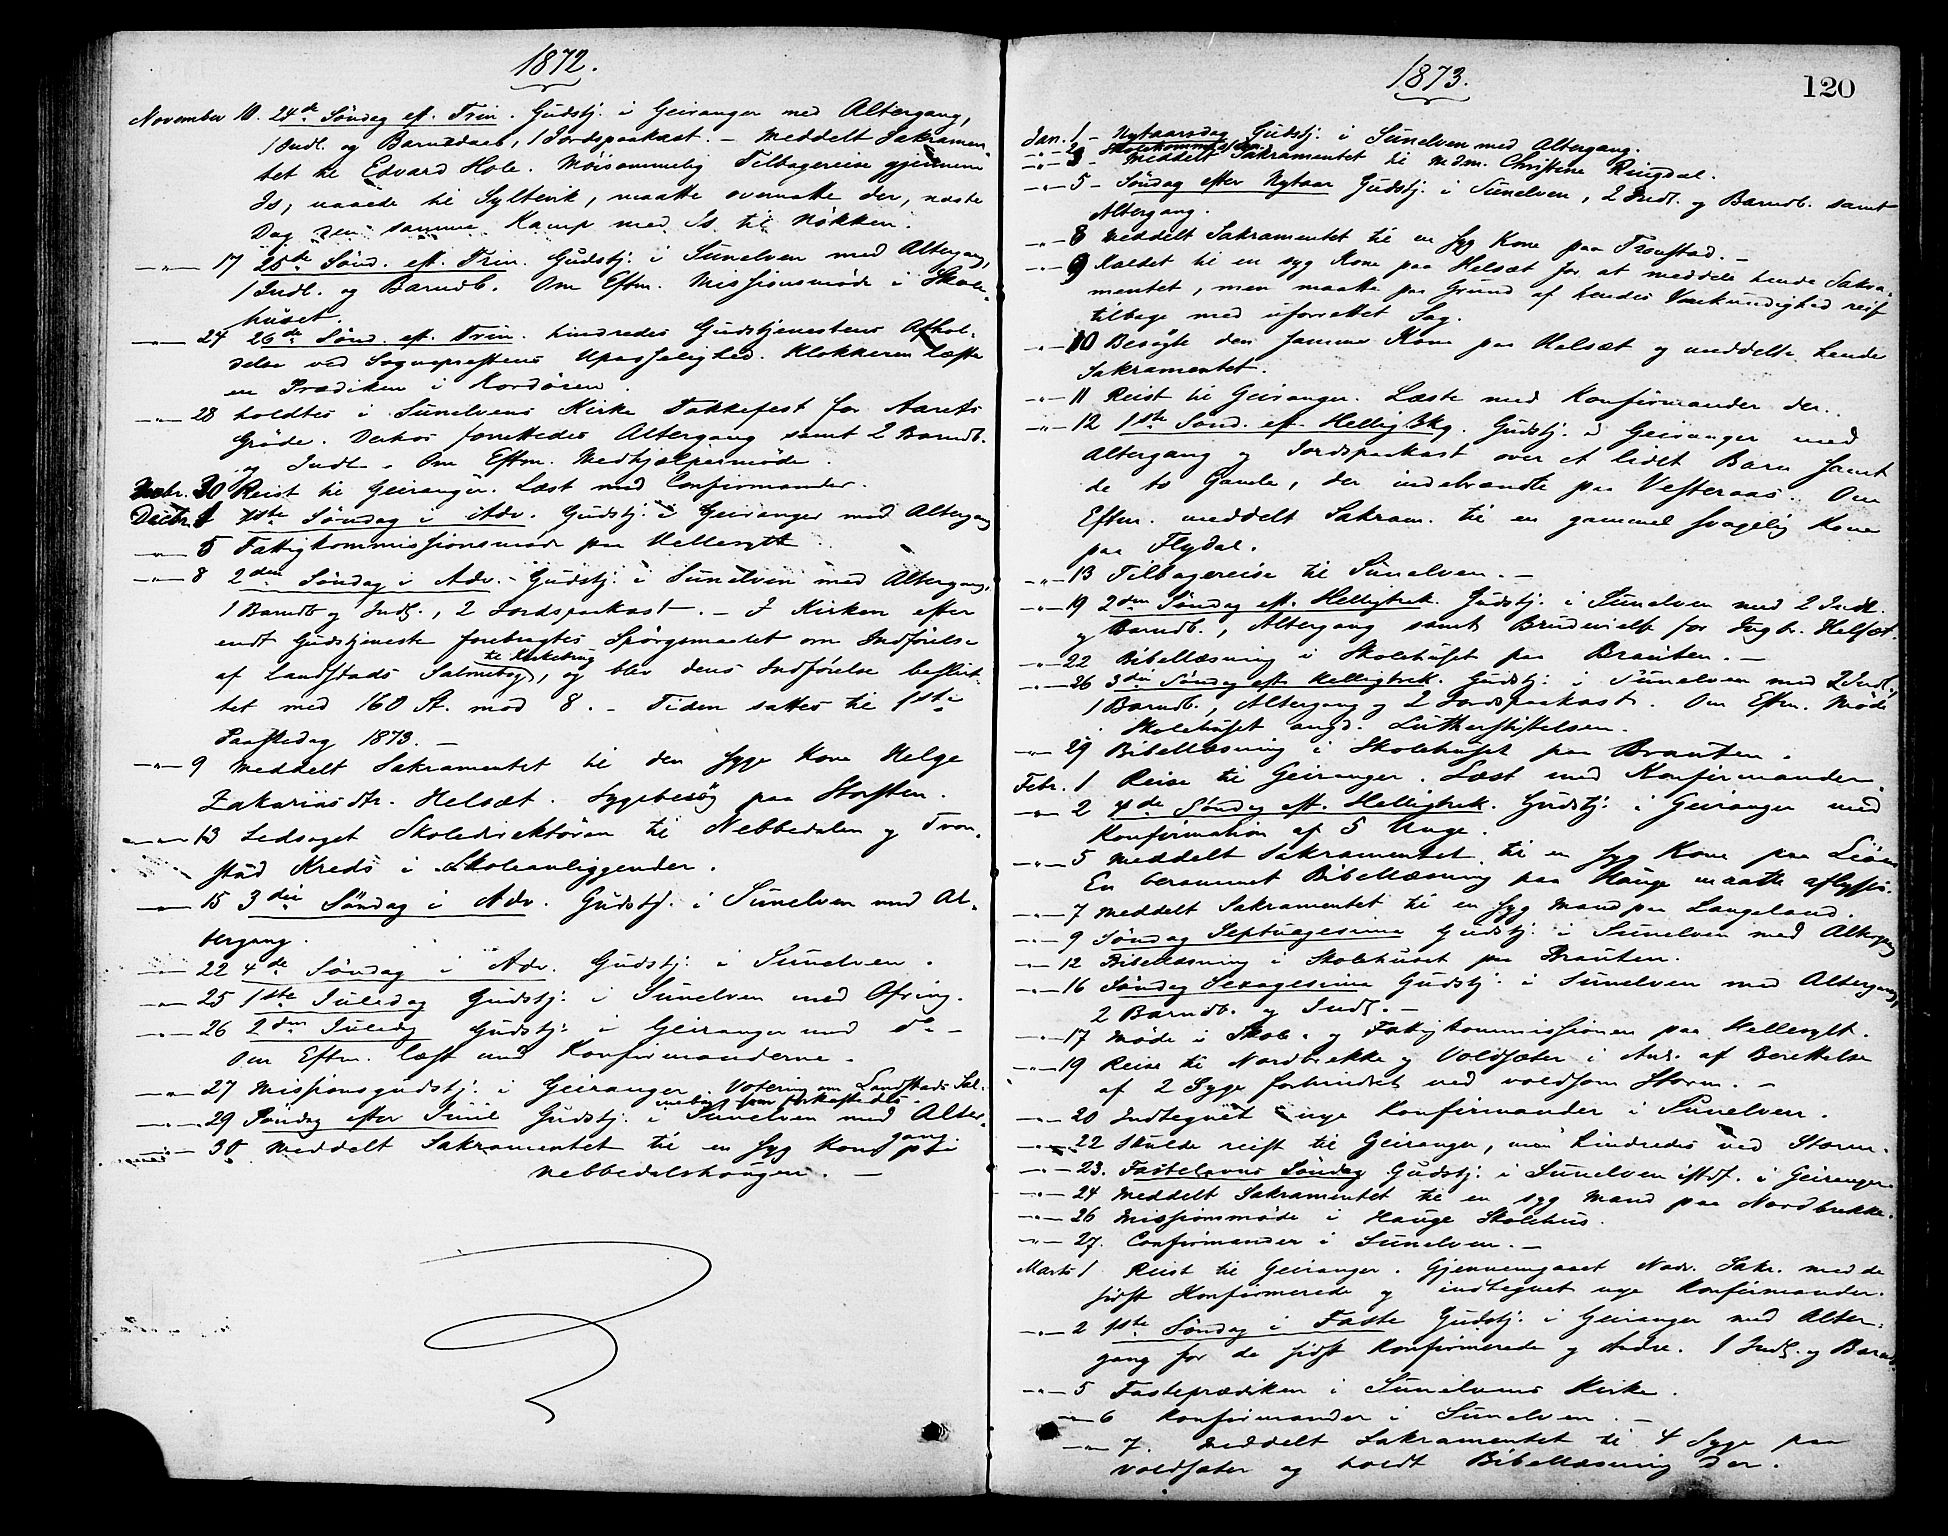 1872.
November 10. 24de Søndag eft. Trin. Gudstj. i Geiranger med Altergang,
1 Indl. og Barnedaab, 1 Jordspaakast. – Meddelt Sakramen-
tet til Edvard Hole. Møisommelig Tilbagereise gjennem
Is, naaede til Syltevik, maatte overnatte der, næste
Dag den samme Kamp med Is til Nøkken.
–"– 17 25de Sønd. eft. Trin. Gudstj. i Sunelven med Altergang,
1 Indl. og Barndb. Om Eftm. Missionsmøde i Skole-
huset.
–"– 24 26de Sønd. eft. Trin. hindredes Gudstjenestens Afhol-
delse ved Sognepræstens Upasselighed. Klokkeren læste
en Prædiken i Kordøren.
–"– 28 holdtes i Sunelvens Kirke Takkefest for Aarets
Grøde. Derhos forrettedes Altergang samt 2 Barndb.
og Indl. Om Eftm. Medhjælpermøde.
Novbr. 30 Reist til Geiranger. Læst med Confirmander.
Decbr. 1 1ste Søndag i Adv. Gudstj. i Geiranger med Altergang
–"– 5 Fattigkommissionsmøde paa Hellesylt.
–"– 8 2den Søndag i Adv. – Gudstj. i Sunelven med Altergang,
1 Barndb og Indl., 2 Jordspaakast. – I Kirken efter
endt Gudstjeneste forebragtes Spørgsmaalet om Indførelse
af Landstads Salmebog til Kirkebrug, og blev dens Indførelse beslut-
tet med 160 St. mod 8. – Tiden sattes til 1ste
Paaskedag 1873. –
–"– 9 Meddelt Sakramentet til den syge Kone Helge
Zakariasdtr. Helsæt. Sygebesøg paa Stofften.
–"– 13 Ledsaget Skoledirektøren til Nebbedalen og Tron-
stad Kreds i Skoleanliggender.
–"– 15 3die Søndag i Adv. Gudstj. i Sunelven med Al-
tergang.
–"– 22 4de Søndag i Adv. Gudstj. i Sunelven.
–"– 25 1ste Juledag Gudstj. i Sunelven med Ofring.
–"– 26 2den Juledag Gudstj. i Geiranger med do –
Om Eftm. læst med Konfirmanderne.
–"– 27 Missionsgudstj. i Geiranger. Votering om Landstads Sal-
mebog som forkastedes.
–"– 29 Søndag efter Juul Gudstj. i Sunelven med Alter-
gang.
–"– 30 Meddelt Sakramentet til en syg Kone på
Nebbedalshougen. –
1873.
120
Jan. 1 – Nytaarsdag Gudstj. i Sunelven med Altergang.
–"– 2 Skolekommission.
–"– 3 – Meddelt Sakramentet til Mdm. Christine Ringdal.
–"– 5 – Søndag efter Nytaar Gudstj. i Sunelven, 2 Indl. og Barndb. samt
Altergang.
–"– 8 Meddelt Sakramentet til en syg Kone paa Tronstad. –
–"– 9 Kaldet til en syg Kone paa Helsæt for at meddele hende Sakra-
mentet, men maatte paa Grund af hendes Vankundighed reise
tilbage med uforrettet Sag.
–"– 10 Besøgte den samme Kone paa Helsæt og meddelte hende
Sakramentet.
–"– 11 Reist til Geiranger. Læste med Konfirmander der.
–"– 12 1ste Sønd. eft. Hellig3Kg. Gudstj. i Geiranger med
Altergang og Jordspaakast over et lidet Barn samt
de to Gamle, der indebrændte paa Vesteraas. Om
Eftm. meddelt Sakram. til en gammel svagelig Kone
paa Flydal.
–"– 13 Tilbagereise til Sunelven. –
–"– 19 2den Søndag eft. Helligtrek. Gudstj. i Sunelven med 2 Indl.
og Barndb., Altergang samt Brudevielse for Ingbr. Helsæt.
–"– 22 Bibellæsning i Skolehuset paa Brauten. –
–"– 26 3die Søndag eft. Helligtrek. Gudstj. i Sunelven med 2 Indl.,
1 Barndb., Altergang og 2 Jordspaakast. Om Eftm. Møde
i Skolehuset angd. Lutherstiftelsen.
–"– 29 Bibellæsning i Skolehuset paa Brauten.
Febr. 1 Reise til Geiranger. Læst med Konfirmander.
–"– 2 4de Søndag eft. Helligtrek. Gudstj. i Geiranger med
Konfirmation af 5 Unge.
–"– 5 Meddelt Sakramentet til en syg Kone paa Liøen
En berammet Bibellæsning paa Hauge maatte aflyses.
–"– 7 Meddelt Sakramentet til en syg Mand paa Langeland.
–"– 9 Søndag Septuagesima Gudstj. i Sunelven med Altergang
–"– 12 Bibellæsning i Skolehuset paa Brauten.
–"– 16 Søndag Sexagesima Gudstj. i Sunelven med Altergang,
2 Barndb. og Indl. –
–"– 17 Møde i Skole- og Fattigkommissionen paa Hellesylt.
–"– 19 Reise til Nordbrekke og Voldsæter i Anl. af Berettelse
af 2 Syge forhindret ved voldsom Storm. –
–"– 20 Indtegnet nye Konfirmander i Sunelven.
–"– 22 Skulde reist til Geiranger, men hindredes ved Storm.
–"– 23. Fastelavns Søndag Gudstj. i Sunelven istdf. i Geiranger.
–"– 24 Meddelt Sakramentet til en syg Mand paa Nordbrekke.
–"– 26 Missionsmøde i Hauge Skolehus.
–"– 27. Confirmander i Sunelven. –
Marts 1 Reist til Geiranger. Gjennemgaaet Nadv. Sakr. med de
sidst Konfirmerede og indtegnet nye Konfirmander.
–"– 2 1ste Søndag i Faste Gudstj. i Geiranger med Alter-
gang for de sidst Konfirmerede og Andre. 1 Indl. og Barndb.
–"– 5 Fasteprædiken i Sunelvens Kirke.
–"– 6 Konfirmander i Sunelven. –
–"– 7. Meddelt Sakramentet til 4 Syge paa
Voldsæter og holdt Bibellæsning der.